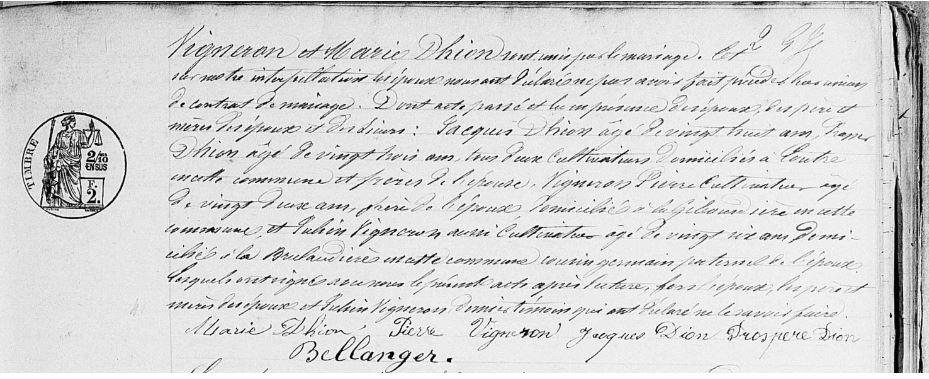 Vigneron et Marie Dhion sont unis par le mariage. Et
sur notre interpellation les époux nous ont déclaré ne pas avoir fait précéder leur union
de contrat de mariage. Dont acte passé et lu en présence des époux, des père et
mères des époux et des sieurs : Jacques Dhion âgé de vingt huit ans, Prosper
Dhion âgé de vingt trois ans, tous deux cultivateurs domiciliés à
en cette commune et frères de l'épouse, Vigneron Pierre cultivateur âgé
de vingt deux ans, frère de l'époux domicilié à la en cette
commune, et Aubin Vigneron aussi cultivateur âgé de vingt six ans domi-
cilié à la en cette commune cousin germain paternel de l'époux.
Lesquels ont signé avec nous le présent acte après lecture, fors l'époux, les père et
mères des époux et Aubin Vigneron, dernier témoin qui ont déclaré ne le savoir faire.
Marie Dhion Pierre Vigneron Jacques Dion Prospere Dion
Bellanger.
TIMBRE
2/10
EN SUS
F.
2.